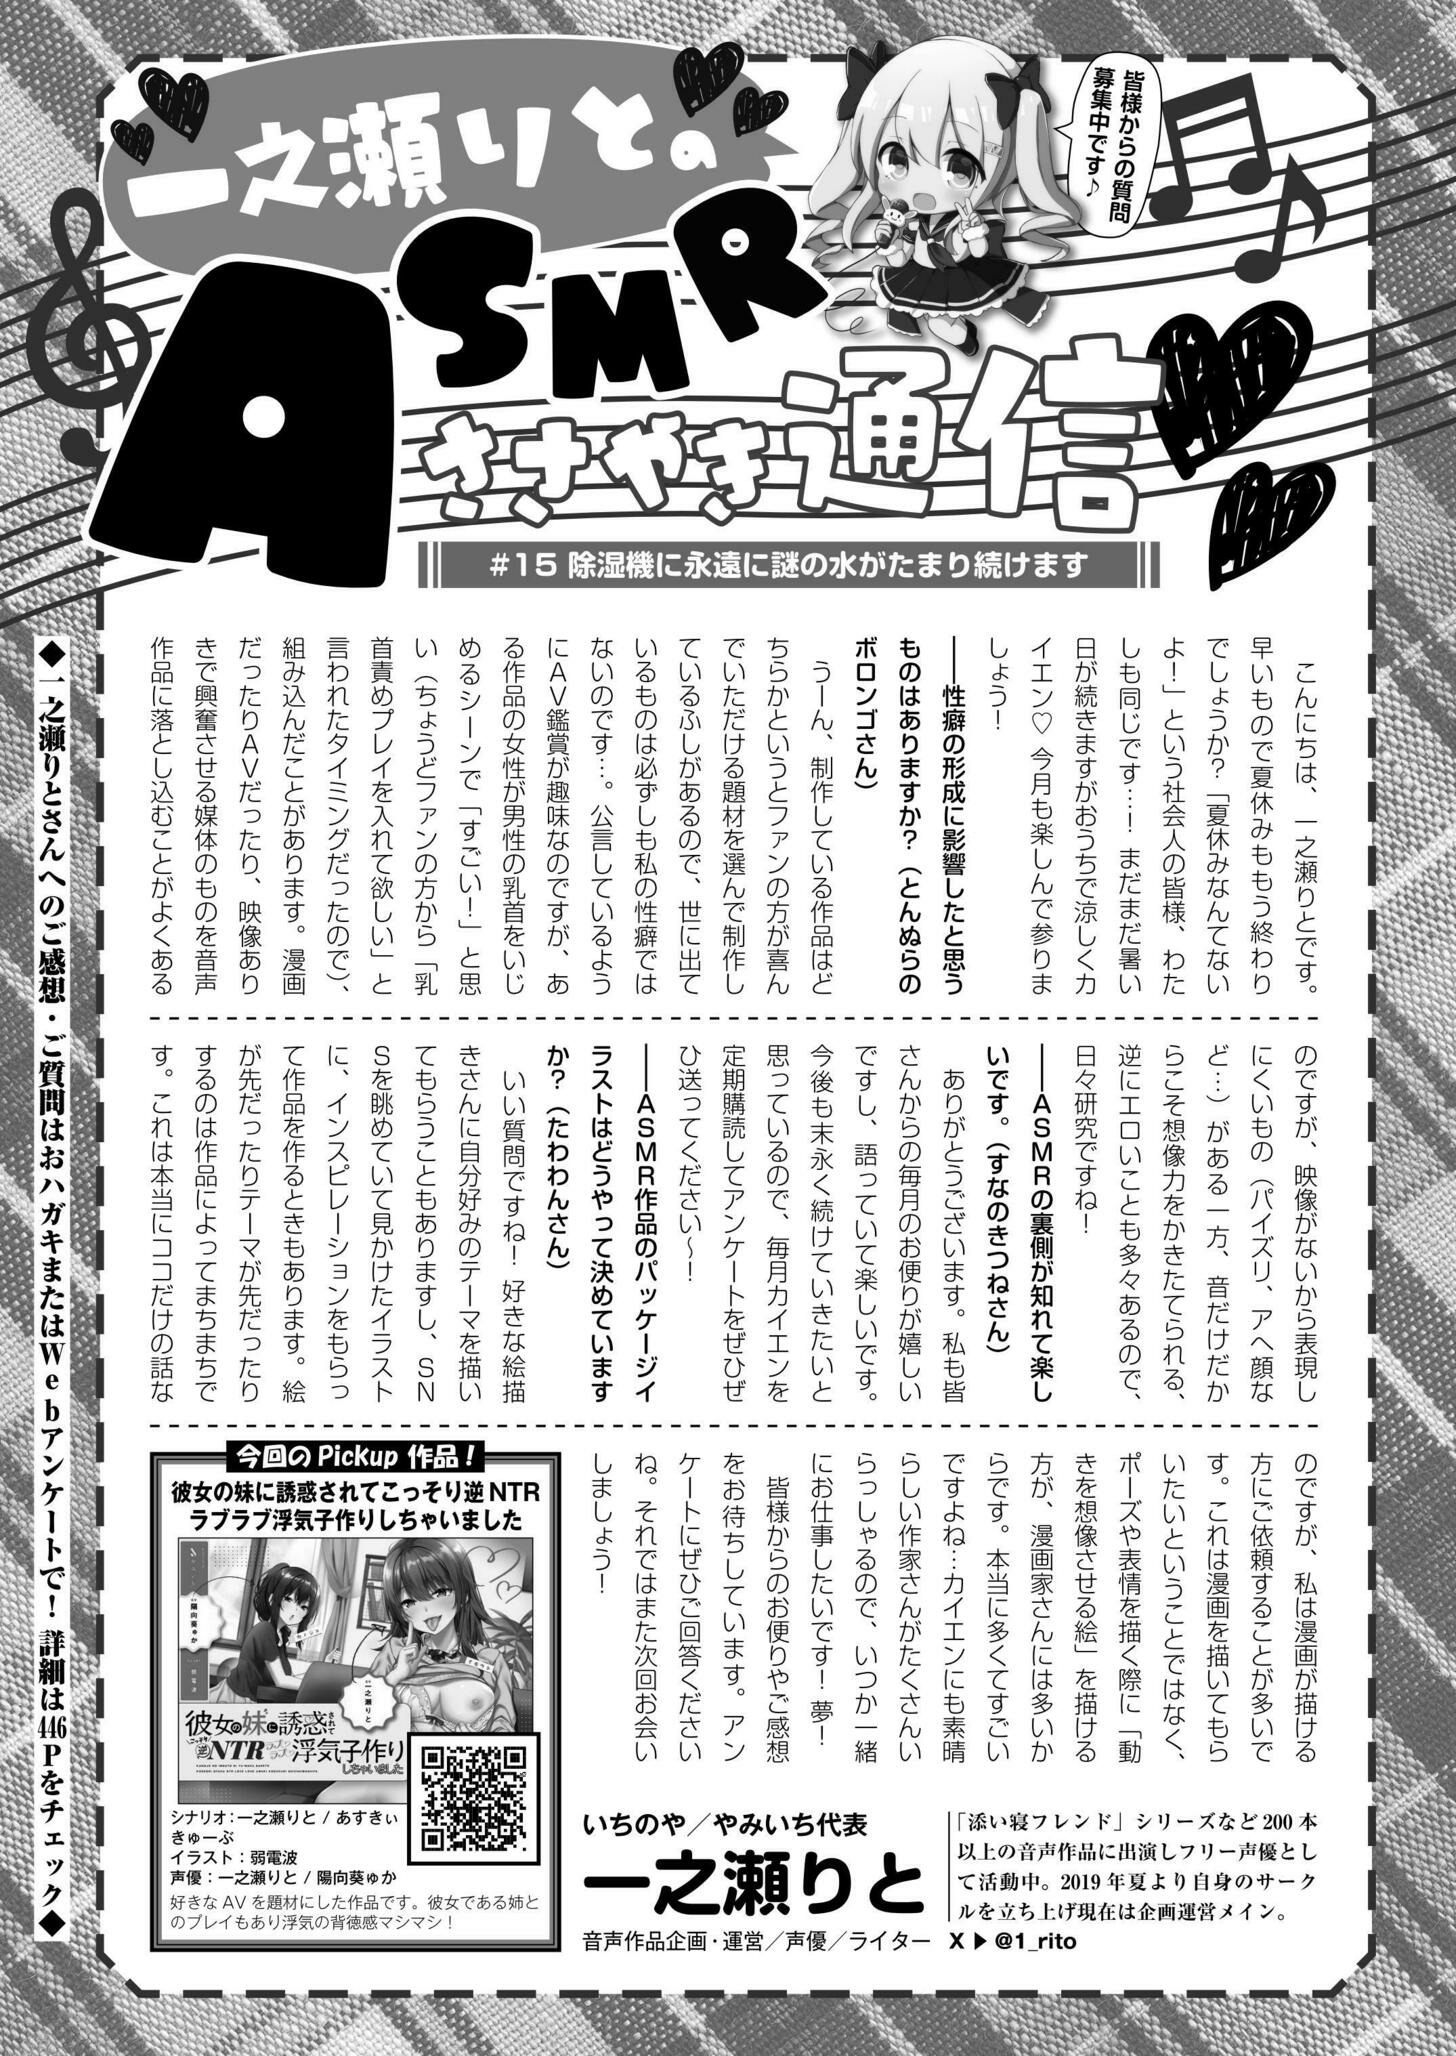 一之瀬りとの
ASMR
ささやき通信
皆様からの質問
募集中です♪
#15 除湿機に永遠に謎の水がたまり続けます
こんにちは、一之瀬りとです。
早いもので夏休みももう終わり
でしょうか?「夏休みなんてない
よ!」という社会人の皆様、わた
しも同じです…! まだまだ暑い
日が続きますがおうちで涼しくカ
イエン♡ 今月も楽しんで参りま
しょう!
――性癖の形成に影響したと思う
ものはありますか?(とんぬらの
ボロンゴさん)
うーん、制作している作品はど
ちらかというとファンの方が喜ん
でいただける題材を選んで制作し
ているふしがあるので、世に出て
いるものは必ずしも私の性癖では
ないのです…。公言しているよう
にAV鑑賞が趣味なのですが、あ
る作品の女性が男性の乳首をいじ
めるシーンで「すごい!」と思
い(ちょうどファンの方から「乳
首責めプレイを入れて欲しい」と
言われたタイミングだったので)、
組み込んだことがあります。漫画
だったりAVだったり、映像あり
きで興奮させる媒体のものを音声
作品に落とし込むことがよくある
のですが、映像がないから表現し
にくいもの(パイズリ、アヘ顔な
ど…)がある一方、音だけだか
らこそ想像力をかきたてられる、
逆にエロいことも多々あるので、
日々研究ですね!
――ASMRの裏側が知れて楽し
いです。(すなのきつねさん)
ありがとうございます。私も皆
さんからの毎月のお便りが嬉しい
ですし、語っていて楽しいです。
今後も末永く続けていきたいと
思っているので、毎月カイエンを
定期購読してアンケートをぜひぜ
ひ送ってください~!
――ASMR作品のパッケージイ
ラストはどうやって決めています
か?(たわわんさん)
いい質問ですね! 好きな絵描
きさんに自分好みのテーマを描い
てもらうこともありますし、SN
Sを眺めていて見かけたイラスト
に、インスピレーションをもらっ
て作品を作るときもあります。絵
が先だったりテーマが先だったり
するのは作品によってまちまちで
す。これは本当にココだけの話な
のですが、私は漫画が描ける
方にご依頼することが多いで
す。これは漫画を描いてもら
いたいということではなく、
ポーズや表情を描く際に「動
きを想像させる絵」を描ける
方が、漫画家さんには多いか
らです。本当に多くてすごい
ですよね…カイエンにも素晴
らしい作家さんがたくさんい
らっしゃるので、いつか一緒
にお仕事したいです! 夢!
皆様からのお便りやご感想
をお待ちしています。アン
ケートにぜひご回答ください
ね。それではまた次回お会い
しましょう!
今回のPickup 作品!
彼女の妹に誘惑されてこっそり逆NTR
ラブラブ浮気子作りしちゃいました
陽向葵ゅか
一之瀬りと
彼女の妹に誘惑されて
こっそり逆NTRラブラブ浮気子作り
しちゃいました
シナリオ:一之瀬りと / あすきぃ
きゅーぶ
イラスト:弱電波
声優:一之瀬りと / 陽向葵ゅか
好きなAVを題材にした作品です。彼女である姉と
のプレイもあり浮気の背徳感マシマシ!
いちのや/やみいち代表
一之瀬りと
音声作品企画・運営/声優/ライター
「添い寝フレンド」シリーズなど200本
以上の音声作品に出演しフリー声優とし
て活動中。2019年夏より自身のサーク
ルを立ち上げ現在は企画運営メイン。
X▶@1_rito
◆一之瀬りとさんへのご感想・ご質問はおハガキまたはWebアンケートで! 詳細は446Pをチェック◆